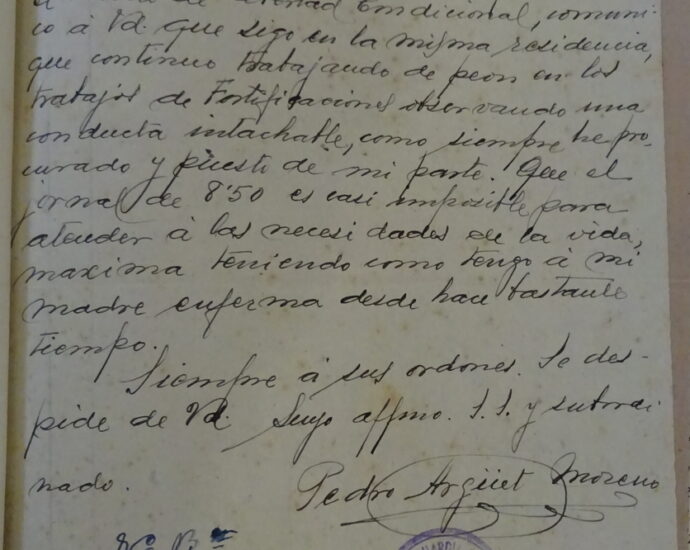 de libertad condicional, comuni-
co á Vd. que sigo en la misma residencia,
que continuo trabajando de peon en los
trabajos de Fortificaciones observando una
conducta intachable, como siempre he pro-
curado y puesto de mi parte. Que el
jornal de 8'50 es casi imposible para
atender á las necesidades de la vida,
maxima teniendo como tengo á mi
madre enferma desde hace bastante
tiempo.
Siempre á sus ordenes. Se des-
pide de Vd. Suyo affmo. S.S. y subordi
nado.
Pedro Argüet Moreno
Vº Bº